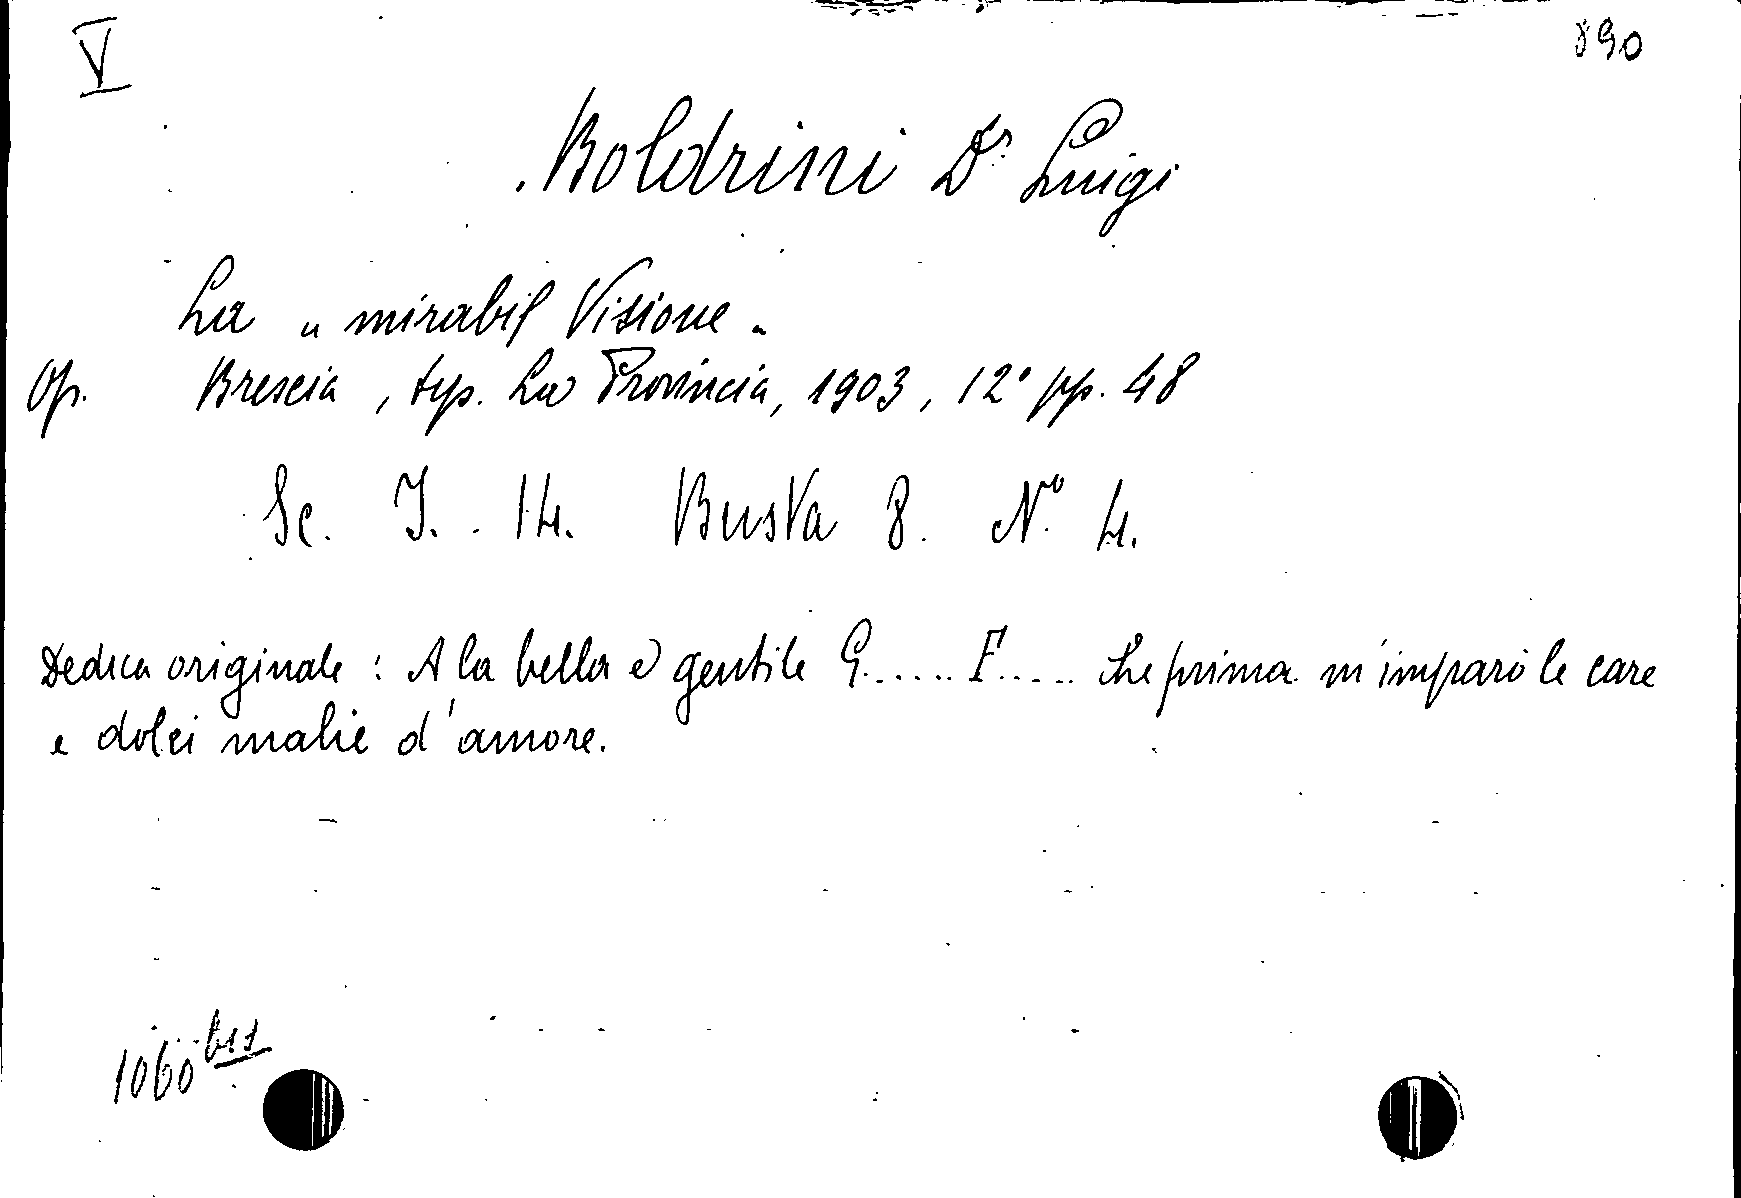 V
890
Boldrini Dr. Luigi
La "mirabil Visione"
Op. Brescia, typ. La Provincia, 1903, 12° pp. 48
Sc. I. 14. Busta 8. N.° 4.
Dedica originale: A la bella e gentile G...... F..... che prima m'imparò le care
e dolci malie d'amore.
1060 bis